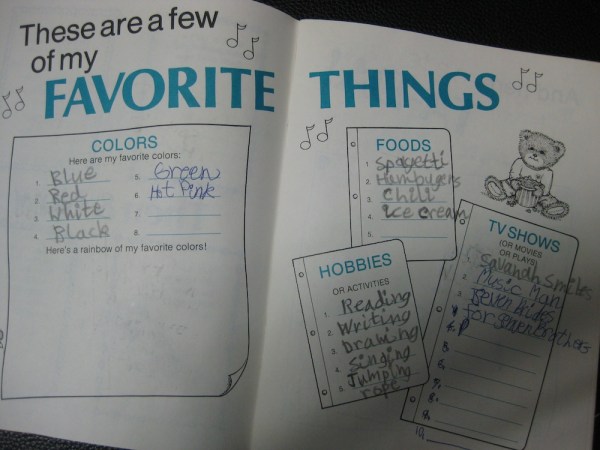 These are a few
of my
FAVORITE THINGS
COLORS
Here are my favorite colors:
1. Blue
2. Red
3. White
4. Black
5. Green
6. Hot Pink
7.
8.
Here's a rainbow of my favorite colors!
FOODS
1. Spagetti
2. Hamburgers
3. Chili
4. ice cream
5.
HOBBIES
OR ACTIVITIES
1. Reading
2. Writing
3. Drawing
4. Singing
5. Jumping
rope
TV SHOWS
(OR MOVIES
OR PLAYS)
1. Savanah Smiles
2. Music Man
3. Seven Brides
for seven brothers